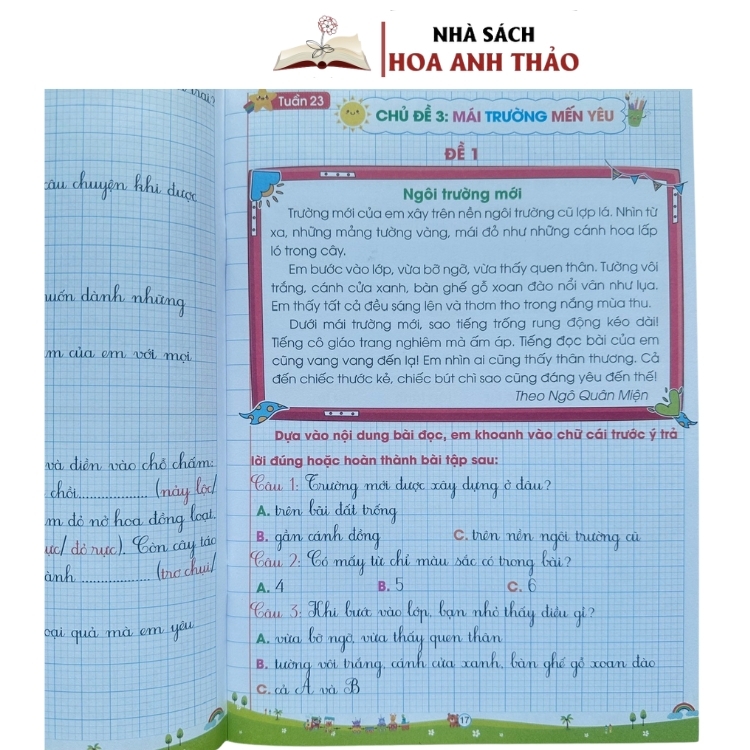 NHÀ SÁCH
HOA ANH THẢO
câu chuyện khi được
muốn dành những
m của em với mọi
và điền vào chỗ chấm:
chồi................ (nảy lộc/
m đỏ nở hoa đồng loạt.
rực/ đỏ rực). Còn cây táo
ành ................ (trơ chụi/
oại quả mà em yêu
Tuần 23
CHỦ ĐỀ 3: MÁI TRƯỜNG MẾN YÊU
ĐỀ 1
Ngôi trường mới
Trường mới của em xây trên nền ngôi trường cũ lợp lá. Nhìn từ
xa, những mảng tường vàng, mái đỏ như những cánh hoa lấp
ló trong cây.
Em bước vào lớp, vừa bỡ ngỡ, vừa thấy quen thân. Tường vôi
trắng, cánh cửa xanh, bàn ghế gỗ xoan đào nổi vân như lụa.
Em thấy tất cả đều sáng lên và thơm tho trong nắng mùa thu.
Dưới mái trường mới, sao tiếng trống rung động kéo dài!
Tiếng cô giáo trang nghiêm mà ấm áp. Tiếng đọc bài của em
cũng vang vang đến lạ! Em nhìn ai cũng thấy thân thương. Cả
đến chiếc thước kẻ, chiếc bút chì sao cũng đáng yêu đến thế!
Theo Ngô Quân Miện
Dựa vào nội dung bài đọc, em khoanh vào chữ cái trước ý trả
lời đúng hoặc hoàn thành bài tập sau:
Câu 1: Trường mới được xây dựng ở đâu?
A. trên bãi đất trống
B. gần cánh đồng C. trên nền ngôi trường cũ
Câu 2: Có mấy từ chỉ màu sắc có trong bài?
A. 4 B. 5 C. 6
Câu 3: Khi bước vào lớp, bạn nhỏ thấy điều gì?
A. vừa bỡ ngỡ, vừa thấy quen thân
B. tường vôi trắng, cánh cửa xanh, bàn ghế gỗ xoan đào
C. cả A và B
17